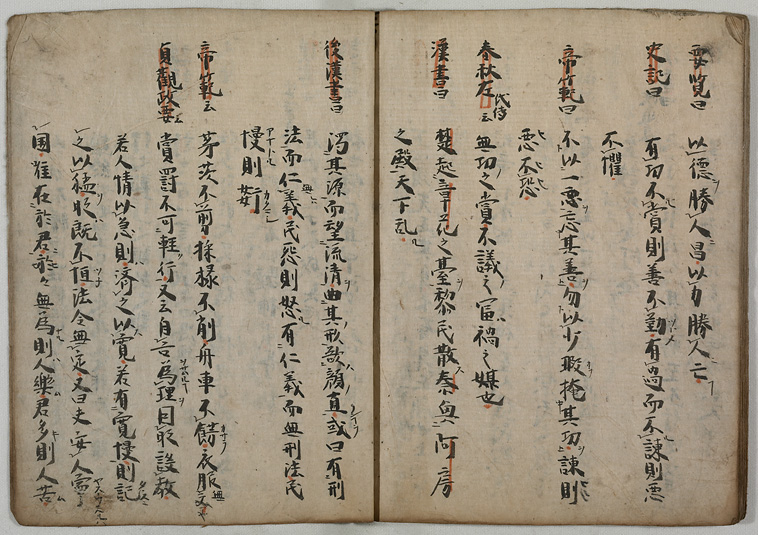 要覧曰 以德勝人昌以力勝人亡
史記曰 有功不賞則善不勤有過而不諫則悪
不懼
帝範曰 不以一悪忘其善勿以少瑕掩其功諫則
悪不恐
春秋左氏傳云 無功之賞不議之富禍之媒也
漢書曰 楚起章花之臺黎民散秦興阿房
之殿天下乱
後漢書曰 濁其源而望流清曲其形欲顔直或曰有刑
法而無仁義民怨則怒有仁義而無刑法民
慢則姧
帝範云 茅茨不剪採椽不削舟車不餝衣服無文
貞觀政要云 賞罸不可軽行又云自古為理因時設教
若人情以急則済之以寛若有寛慢則記
之以猛時既不恒法令無定又曰夫安人寧
國唯在於君於々無為則人樂君多則人苦